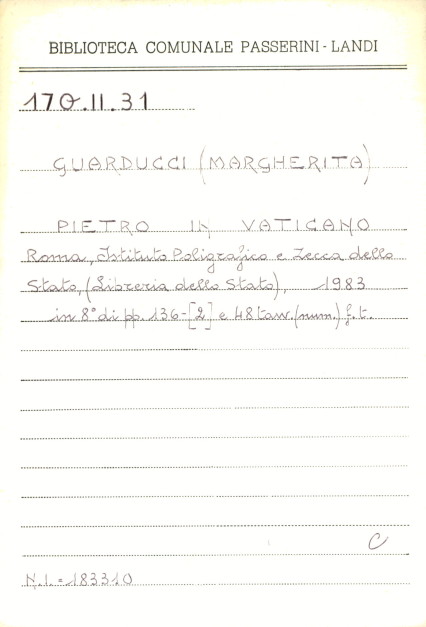 BIBLIOTECA COMUNALE PASSERINI - LANDI
170.II.31
GUARDUCCI (MARGHERITA)
PIETRO IN VATICANO
Roma, Istituto Poligrafico e Zecca dello
Stato, (Libreria dello Stato), 1983
in 8° di pp. 136-[2] e 48 tav. (num.) f. t.
C
N.I. = 183310